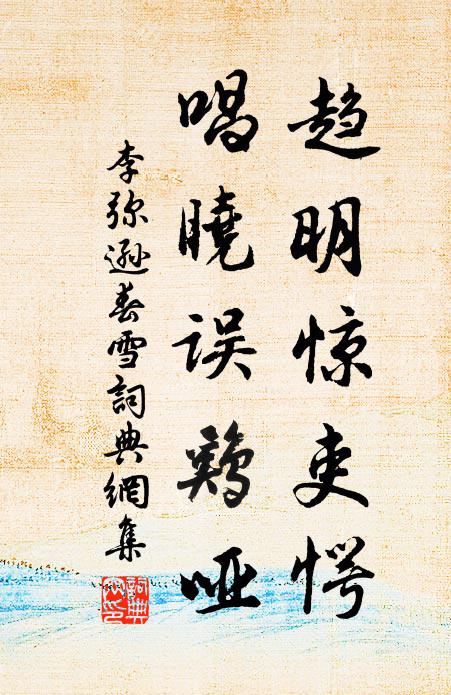 趋明惊吏愕
唱曉误鷄哑
李弥遜春雪詞典網集